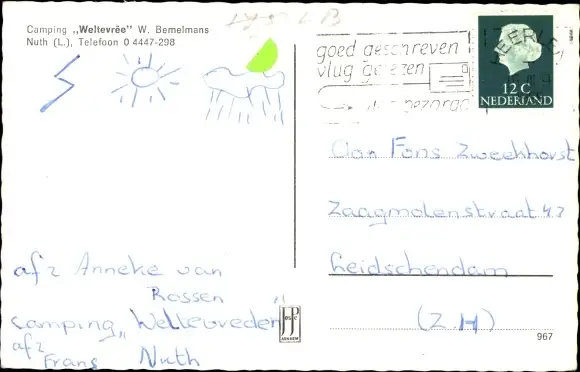 Camping „Weltevrêe” W. Bemelmans
Nuth (L.), Telefoon 0 4447-298
goed geschreven
vlug gelezen
HEERLEN
12 C
NEDERLAND
Aan Fons Zweekhorst
Zaagmolenstraat 47
Leidschendam
(Z.H)
afz Anneke van
Rossen
camping „Weltevreden”
afz Nuth
Frans
JosPe
ARNHEM
967